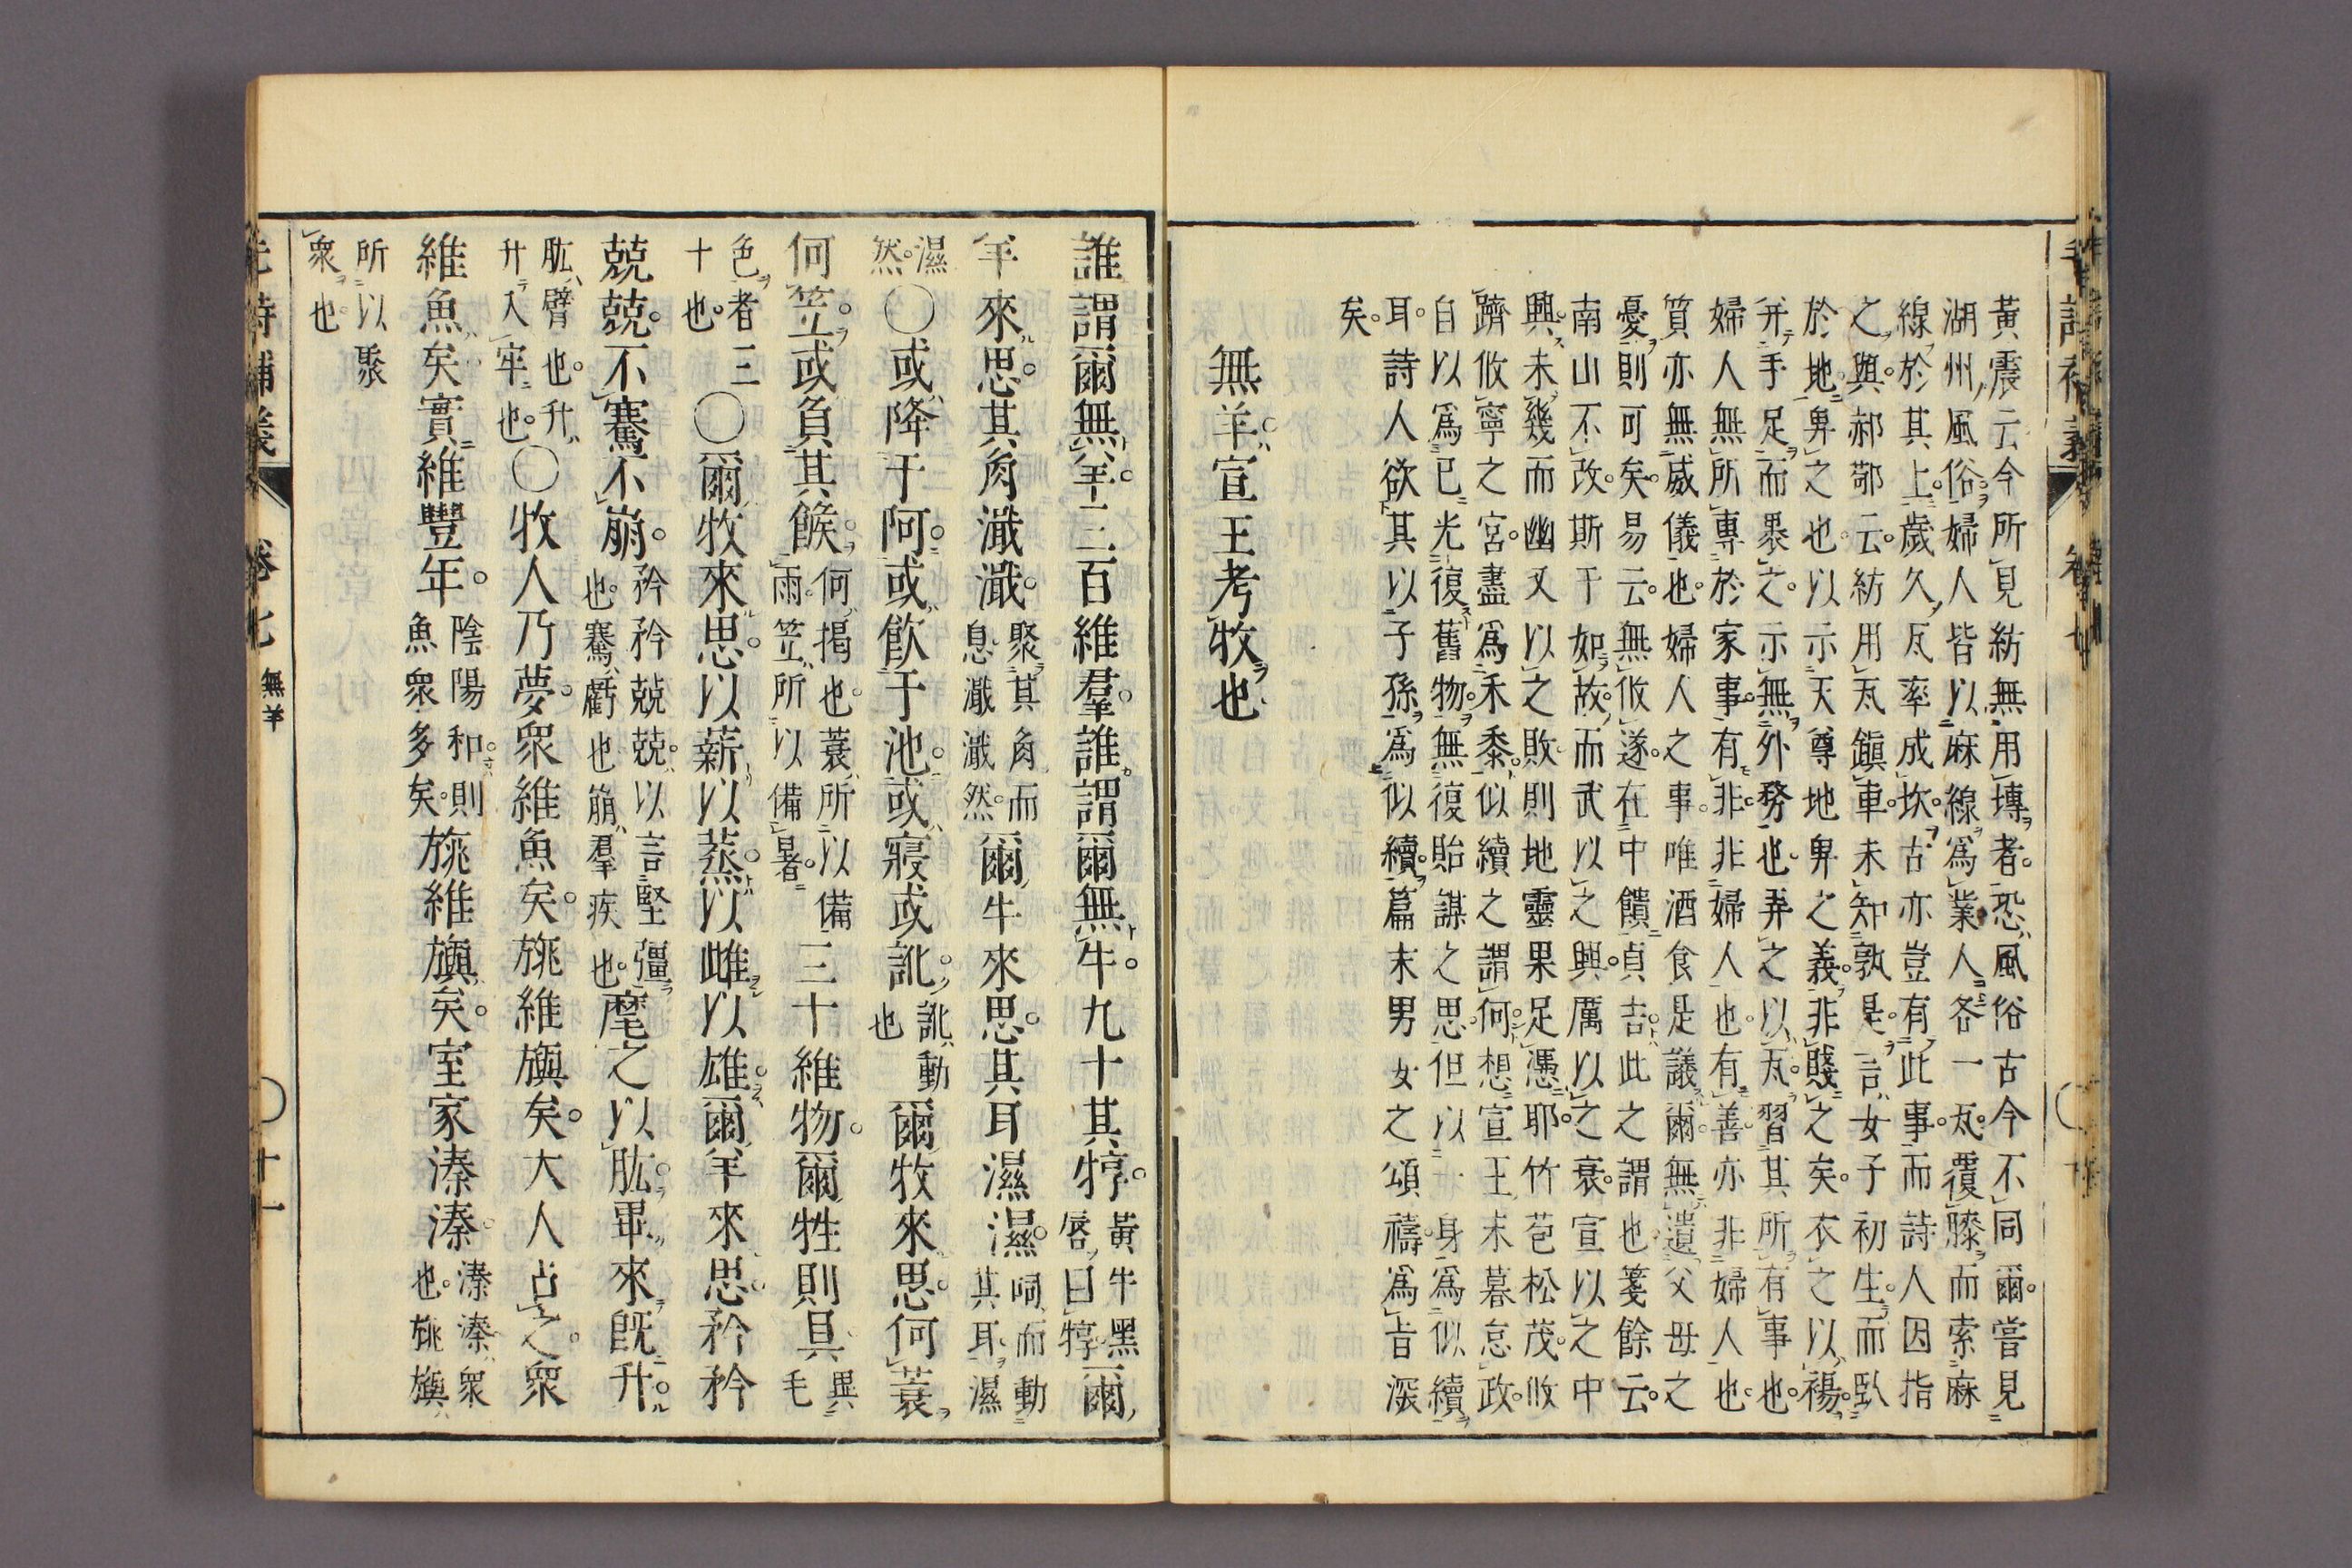 黃震云今所見紡無用塼者恐風俗古今不同爾嘗見
湖州風俗婦人皆以麻線爲業人各一瓦覆膝而索麻
線於其上歲久瓦率成坎古亦豈有此事而詩人因指
之與郝鄀云紡用瓦鎭車未知孰是言女子初生而臥
於地卑之也以示天尊地卑之義非賤之矣衣之以褐
幷手足而褁之示無外務也弄之以瓦習其所有事也
婦人無所專於家事有非非婦人也有善亦非婦人也
質亦無威儀也婦人之事唯酒食是議爾無遺父母之
憂則可矣易云無攸遂在中饋貞吉此之謂也箋餘云
南山不改斯干如故而武以之興厲以之衰宣以之中
興未幾而幽又以之敗則地靈果足憑耶竹苞松茂攸
躋攸寧之宮盡爲禾黍似續之謂何想宣王末暮怠政
自以爲已光復舊物無復貽謀之思但以一身爲似續
耳詩人欲其以子孫爲似續篇末男女之頌禱爲旨深
矣
無羊宣王考牧也
誰謂爾無羊三百維羣誰謂爾無牛九十其犉黃牛黑脣曰犉爾
羊來思其角濈濈聚其角而息濈濈然爾牛來思其耳濕濕呞而動其耳濕
濕然○或降于阿或飮于池或寢或訛訛動也爾牧來思何蓑
何笠或負其餱何揭也蓑所以備雨笠所以備暑三十維物爾牲則具異毛
色者三十也○爾牧來思以薪以蒸以雌以雄爾羊來思矜矜
兢兢不騫不崩矜矜兢兢以言堅彊也騫虧也崩羣疾也麾之以肱畢來旣升
肱臂也升升入牢也○牧人乃夢衆維魚矣旐維旟矣大人占之衆
維魚矣實維豐年陰陽和則魚衆多矣旐維旟矣室家溱溱溱溱衆也旐旟
所以聚衆也
卷七 無羊 ○十一